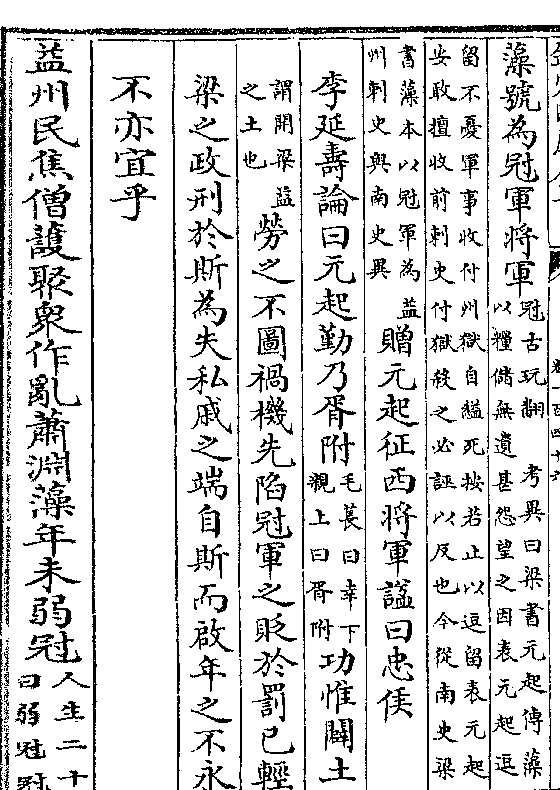 藻號為冠軍將軍
冠古玩翻 考異曰梁書元起傳藻
以糧儲無遺甚怨望之因表元起逗
留不憂軍事收付州獄自縊死按若止以逗留表元起
安敢擅收前刺史付獄殺之必誣以反也今從南史梁
書藻本以冠軍為益
州刺史與南史異
贈元起征西將軍諡曰忠侯
李延壽論曰元起勤乃胥附
毛萇曰率下
親上曰胥附
功惟闢土
謂開梁益
之土也
勞之不圖禍機先陷冠軍之貶於罰已輕
梁之政刑於斯為失私戚之端自斯而啟年之不永
不亦宜乎
益州民焦僧護聚衆作亂蕭淵藻年未弱冠
人生二十
曰弱冠冠